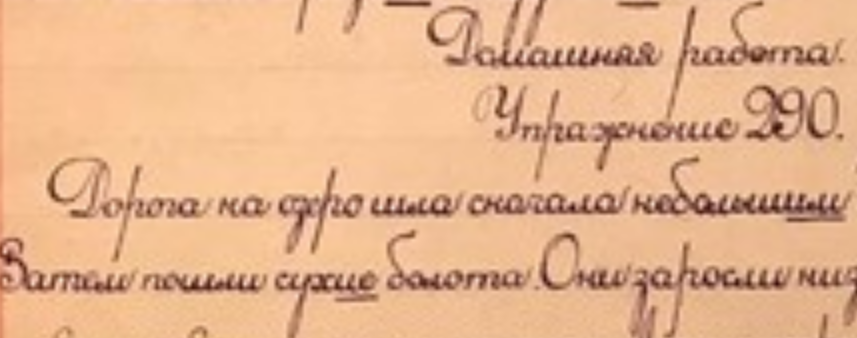 Домашняя работа.
Упражнение 290.
Дорога на озеро шла сначала небольшим
Затем пошли сухие болота. Они заросли низ